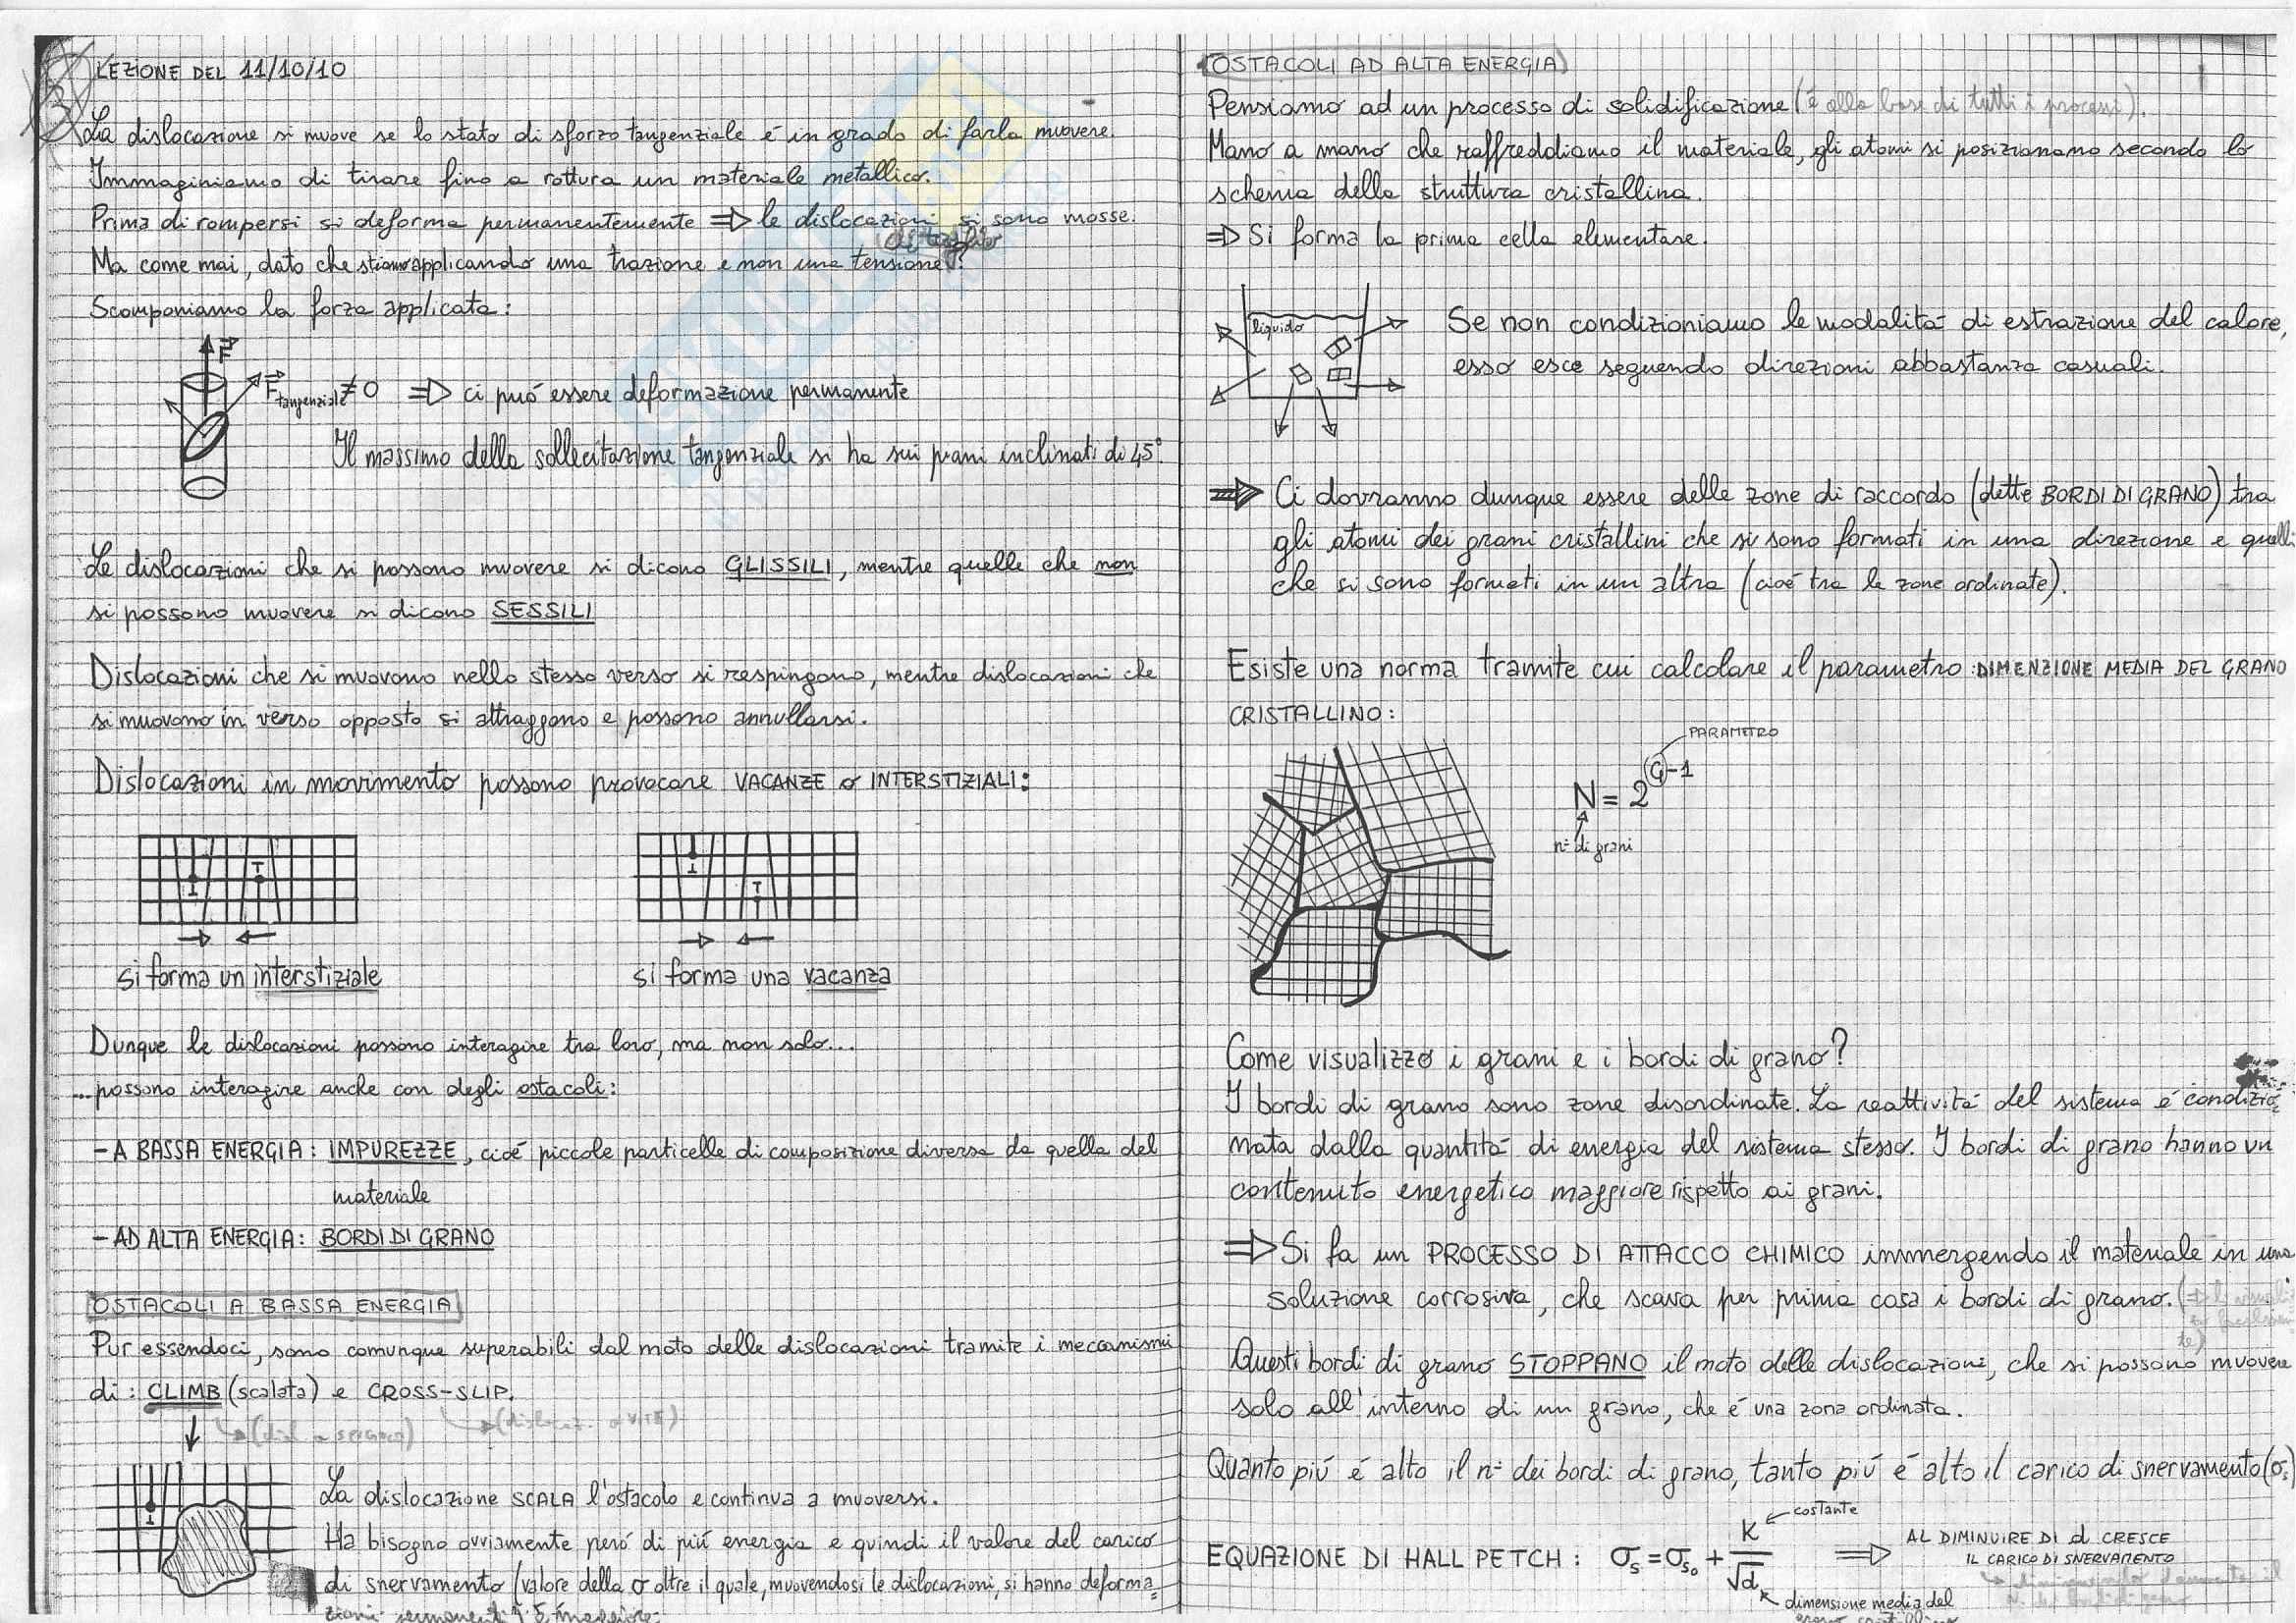 LEZIONE DEL 11/10/10
La dislocazione si muove se lo stato di sforzo tangenziale é in grado di farla muovere.
Immaginiamo di tirare fino a rottura un materiale metallico.
Prima di rompersi si deforma permanentemente ⇒ le dislocazioni si sono mosse.
(di taglio)
Ma come mai, dato che stiamo applicando una trazione e non una tensione?
Scomponiamo la forza applicata:
F
F tangenziale ≠ 0 ⇒ ci puó essere deformazione permanente
Il massimo della sollecitazione tangenziale si ha sui piani inclinati di 45°.
Le dislocazioni che si possono muovere si dicono GLISSILI, mentre quelle che non
si possono muovere si dicono SESSILI
Dislocazioni che si muovono nello stesso verso si respingono, mentre dislocazioni che
si muovono in verso opposto si attraggono e possono annullarsi.
Dislocazioni in movimento possono provocare VACANZE o INTERSTIZIALI:
si forma un interstiziale
si forma una vacanza
Dunque le dislocazioni possono interagire tra loro, ma non solo...
...possono interagire anche con degli ostacoli:
- A BASSA ENERGIA: IMPUREZZE, cioé piccole particelle di composizione diversa da quella del
materiale
- AD ALTA ENERGIA: BORDI DI GRANO
OSTACOLI A BASSA ENERGIA
Pur essendoci, sono comunque superabili dal moto delle dislocazioni tramite i meccanismi
di: CLIMB (scalata) e CROSS-SLIP.
La dislocazione SCALA l'ostacolo e continua a muoversi.
Ha bisogno ovviamente peró di piú energia e quindi il valore del carico
di snervamento (valore della σ oltre il quale, muovendosi le dislocazioni, si hanno deforma=
zioni permanenti) é maggiore.
OSTACOLI AD ALTA ENERGIA
Pensiamo ad un processo di solidificazione (é alla base di tutti i processi).
Mano a mano che raffreddiamo il materiale, gli atomi si posizionano secondo lo
schema della struttura cristallina.
⇒ Si forma la prima cella elementare.
liquido
Se non condizioniamo le modalitá di estrazione del calore,
esso esce seguendo direzioni abbastanza casuali.
⇒ Ci dovranno dunque essere delle zone di raccordo (dette BORDI DI GRANO) tra
gli atomi dei grani cristallini che si sono formati in una direzione e quelli
che si sono formati in un altra (cioé tra le zone ordinate).
Esiste una norma tramite cui calcolare il parametro DIMENZIONE MEDIA DEL GRANO
CRISTALLINO:
PARAMETRO
N = 2^(G-1)
n° di grani
Come visualizzo i grani e i bordi di grano?
I bordi di grano sono zone disordinate. La reattivitá del sistema é condizio=
nata dalla quantitá di energia del sistema stesso. I bordi di grano hanno un
contenuto energetico maggiore rispetto ai grani.
⇒ Si fa un PROCESSO DI ATTACCO CHIMICO immergendo il materiale in una
soluzione corrosiva, che scava per prima cosa i bordi di grano.
Questi bordi di grano STOPPANO il moto delle dislocazioni, che si possono muovere
solo all'interno di un grano, che é una zona ordinata.
Quanto piú é alto il n° dei bordi di grano, tanto piú é alto il carico di snervamento (σs)
costante
EQUAZIONE DI HALL PETCH: σs = σs₀ + K/√d ⇒ AL DIMINUIRE DI d CRESCE
IL CARICO DI SNERVAMENTO
dimensione media del
grano cristallino